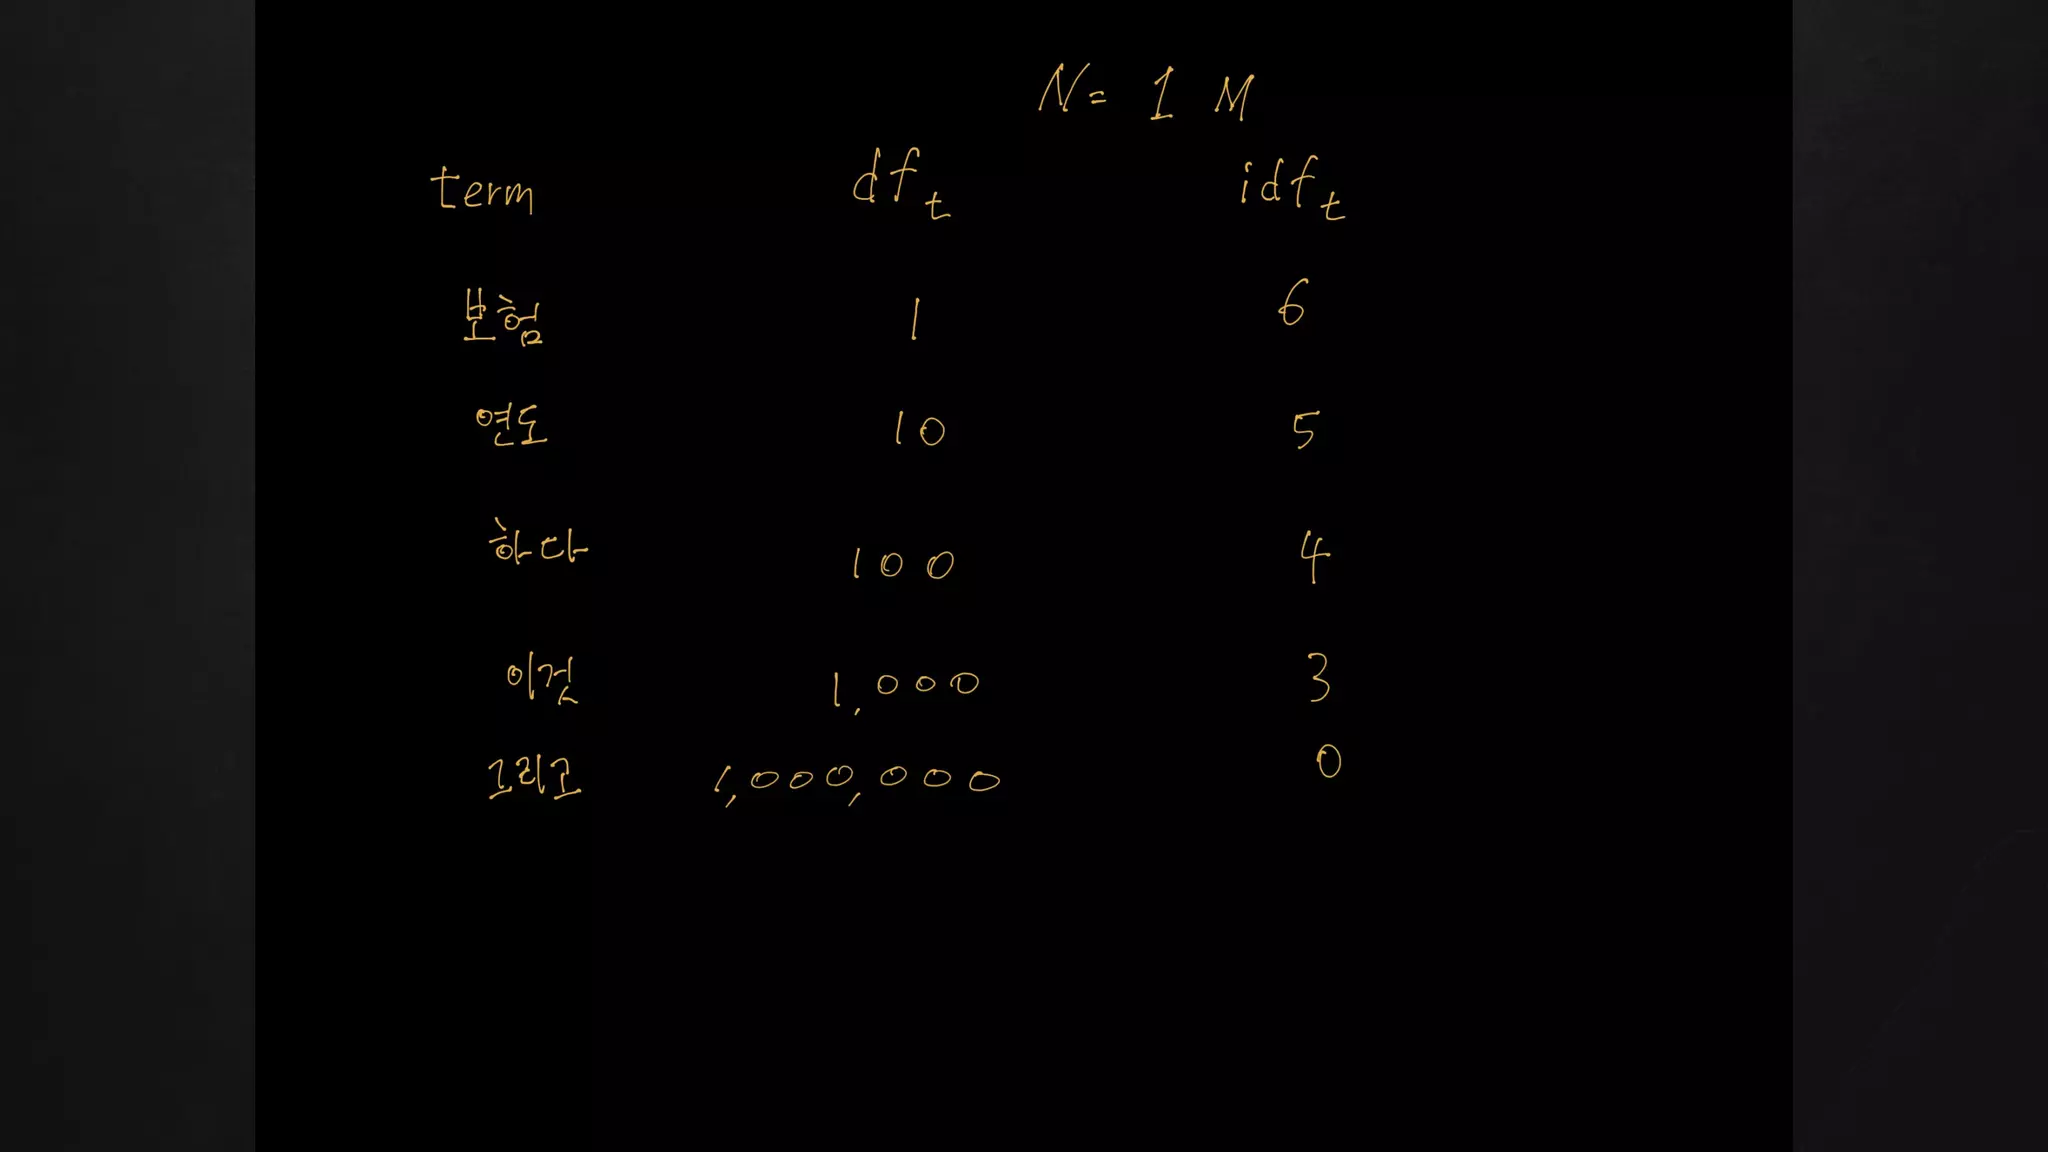 N= 1 M
term df t idf t
보험 1 6
연도 10 5
하다 100 4
이것 1,000 3
그리고 1,000,000 0